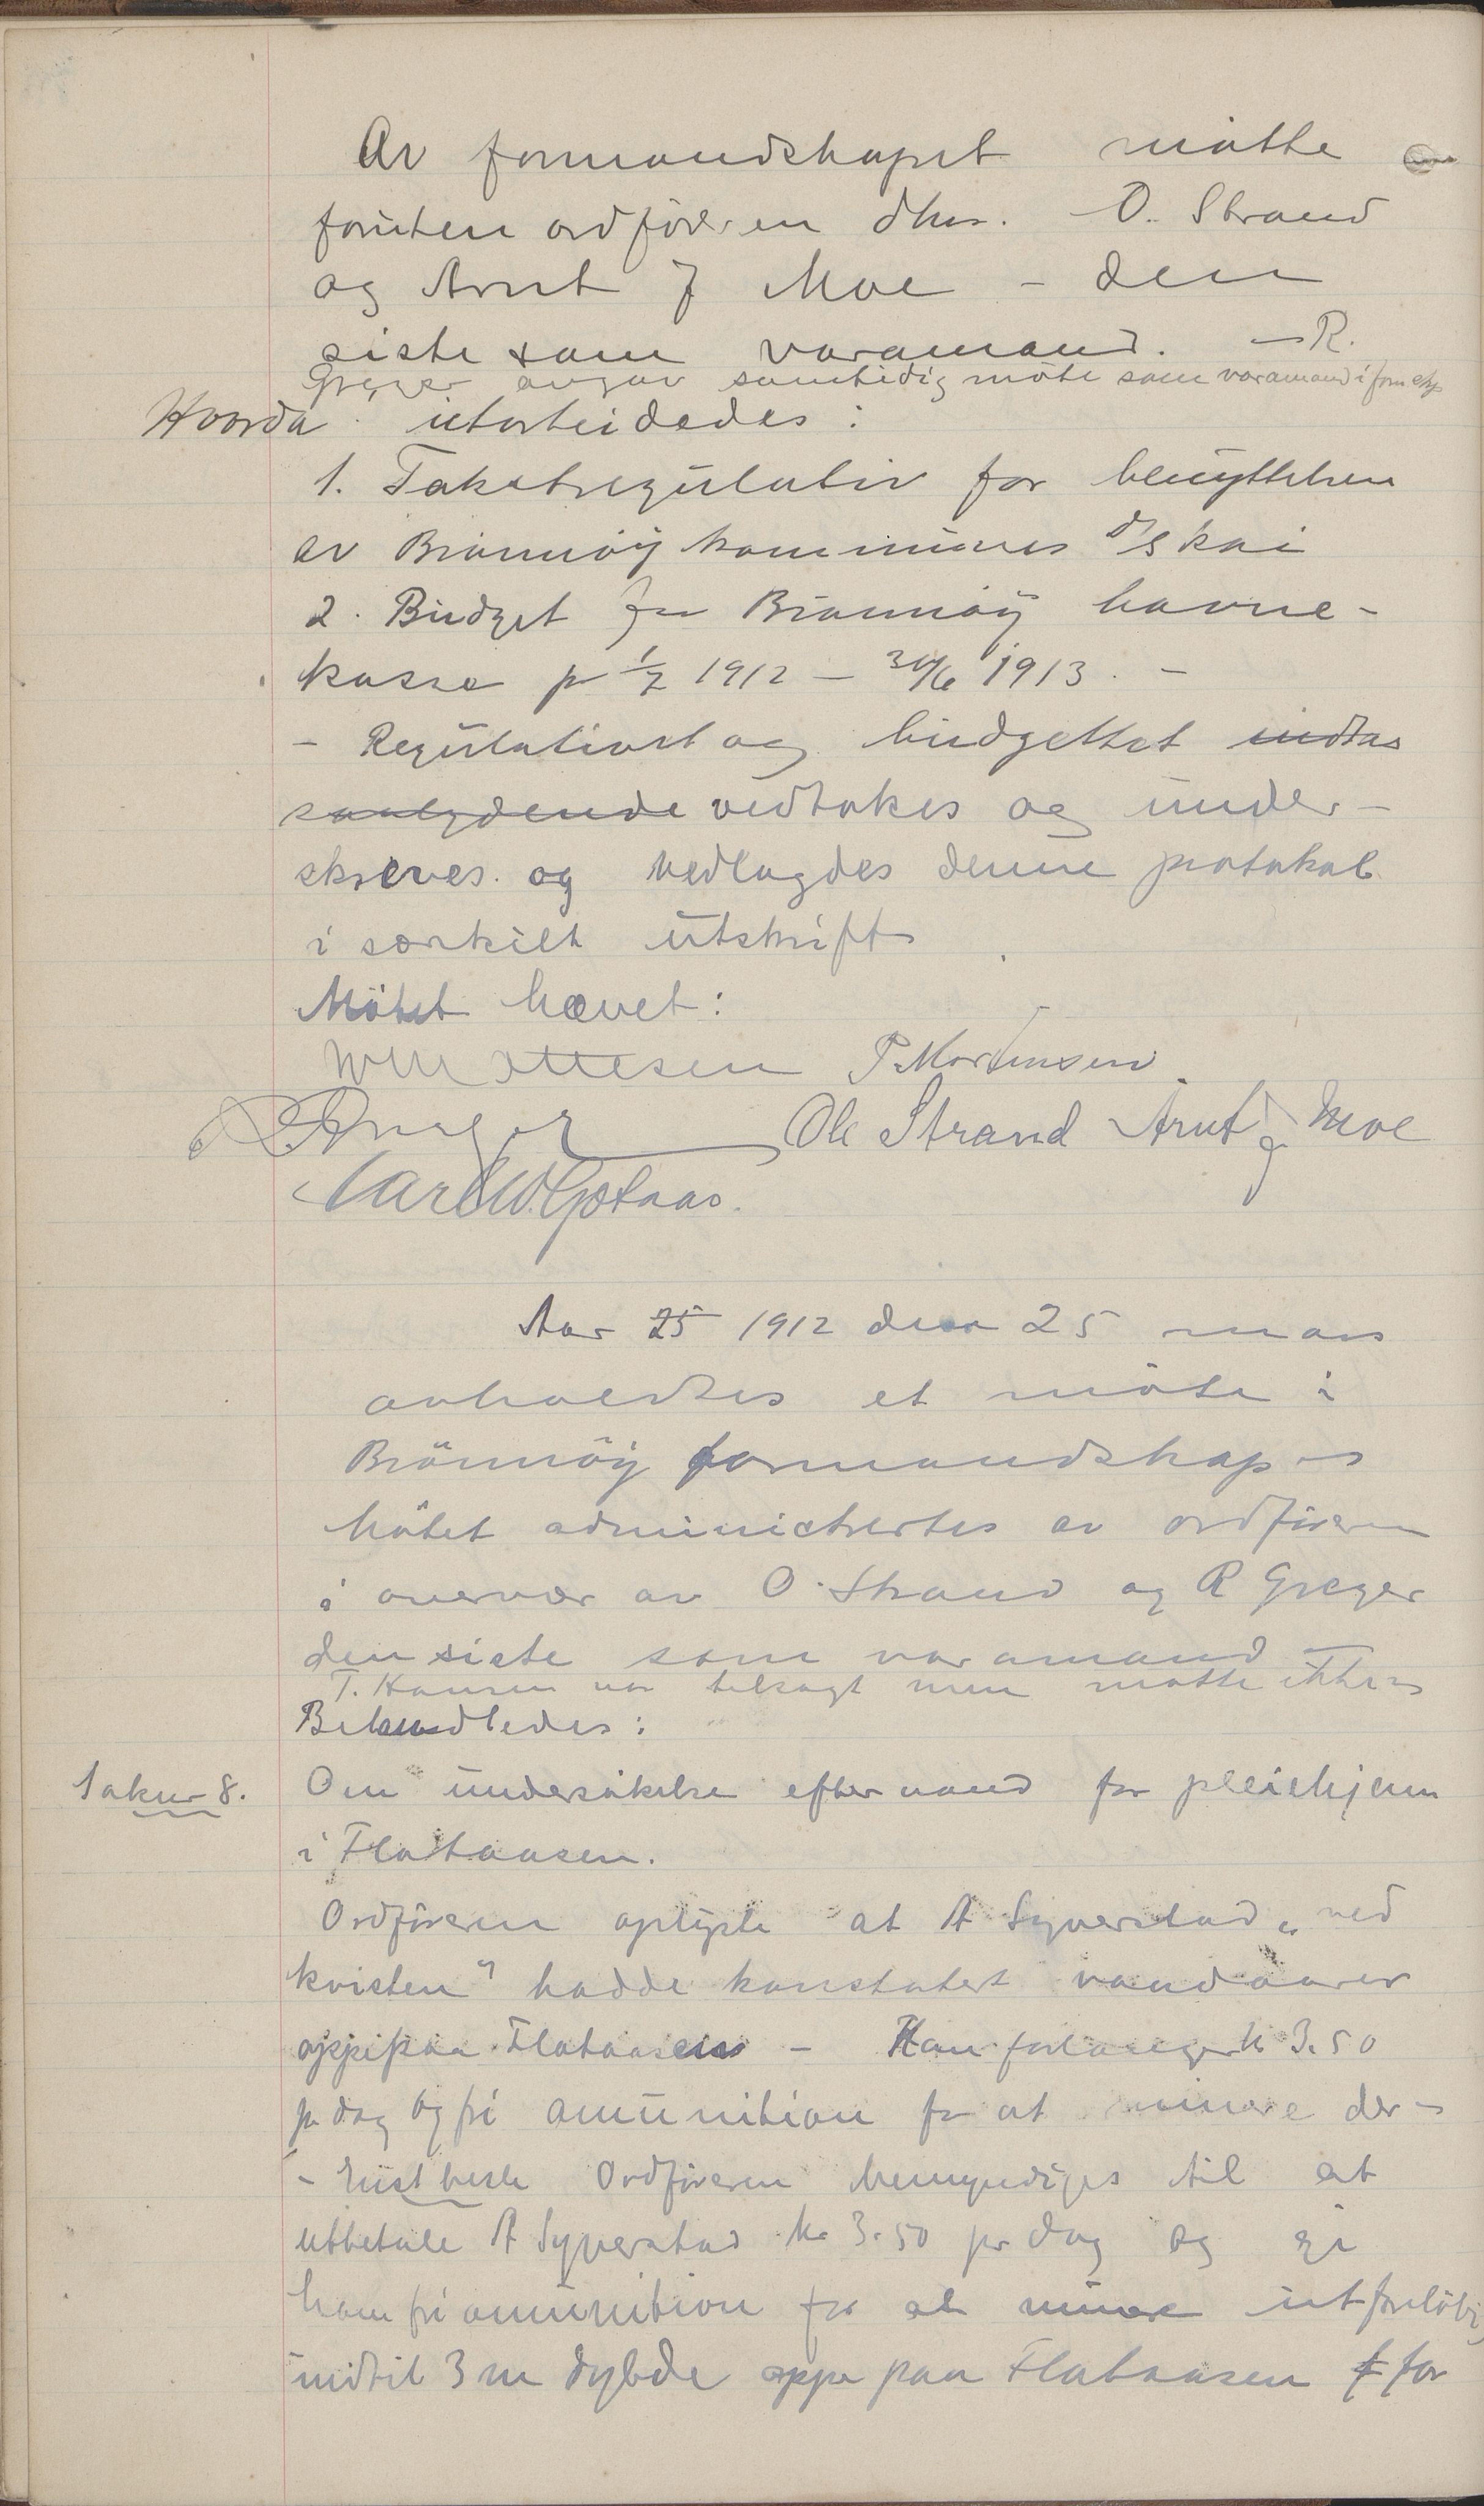 Av formandskapet møtte
foruten ordføreren dhrr. O. Strand
og Arnt J Moe - den
siste som varamand. - R.
Greger avgav samtidig møte som varamand i formskp
Hvorda utarbeidedes:
1. Takstregulativ for benyttelsen
av Brønnøy kommunes d/s kai
2. Budget for Brønnøy havne-
kasse pr 1/7 1912 - 30/6 1913. -
- Regulativet og budgettet indtas
saalydende vedtokes og under-
skreves. og vedlagdes denne protokol
i særskilt utskrift.
Møtet hævet:
Ottesen P. Mortensen.
R Greger Ole Strand Arnt J Moe
Carl W. Gotaas.
Aar 25 1912 den 25 mars
avholdtes et møte i
Brønnøy formandskap -
Møtet administrertes av ordføreren
i overvær av O. Strand og R Greger
den siste som varamand -
T. Hansen var tilsagt men møtte ikke -
Behandledes:
Sak nr 8.
Om undersøkelse efter vand for pleiehjem
i Flataasen.
Ordføreren oplyste at A Syverstad „ved
kvisten" hadde konstatert vandaarer
oppipaa Flataasen - Han forlanger kr 3.50
pr dag og fri amunition for at minere der -
- Enst besl. Ordføreren bemyndiges til at
utbetale A Syverstad kr 3.50 pr dag og gi
ham fri amunition for at minere ut foreløbig
indtil 3 m dybde oppe paa Flataasen f for